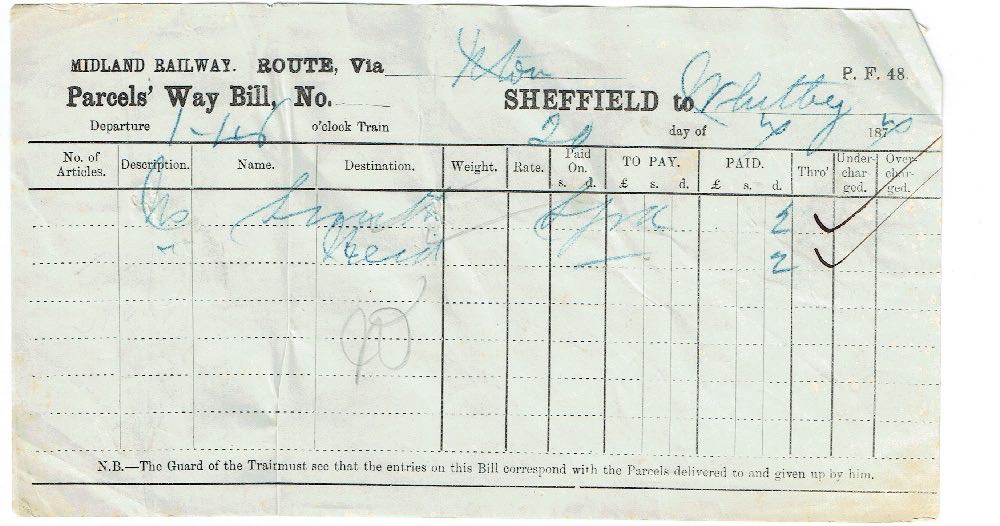 MIDLAND RAILWAY. ROUTE, Via P. F. 48.
Parcels' Way Bill, No. SHEFFIELD to Whitby
Departure 1-45 o'clock Train 20 day of 187
No. of Articles. Description. Name. Destination. Weight. Rate. Paid On. s. d. TO PAY. £ s. d. PAID. £ s. d. Thro' Under-char-ged. Over-char-ged.
2
Reid 2
N.B.—The Guard of the Train must see that the entries on this Bill correspond with the Parcels delivered to and given up by him.